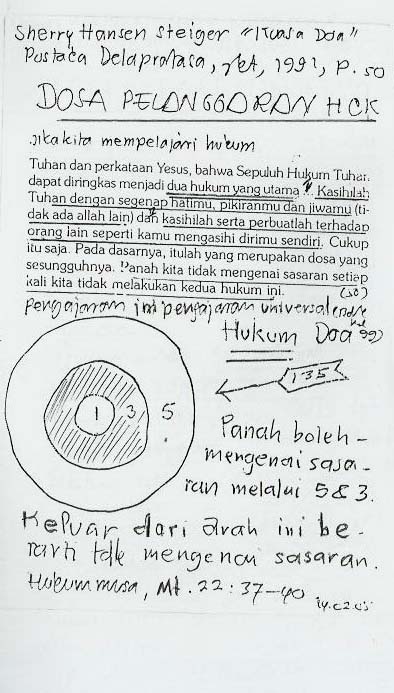 Sherry Hansen Steiger "Kuasa Doa"
Pustaca Delapratasa, Jkt, 1992, p. 50
DOSA PELANGGARAN HCK
Jika kita mempelajari hukum
Tuhan dan perkataan Yesus, bahwa Sepuluh Hukum Tuhan
dapat diringkas menjadi dua hukum yang utama. Kasihilah
Tuhan dengan segenap hatimu, pikiranmu dan jiwamu (ti-
dak ada allah lain) dan kasihilah serta perbuatlah terhadap
orang lain seperti kamu mengasihi dirimu sendiri. Cukup
itu saja. Pada dasarnya, itulah yang merupakan dosa yang
sesungguhnya. Panah kita tidak mengenai sasaran setiap
kali kita tidak melakukan kedua hukum ini. (50)
pengajaran ini pengajaran universal
Hukum Doa
135
1 3 5
Panah boleh-
mengenai sasa-
ran melalui 5 & 3.
Keluar dari arah ini be-
rarti tdk mengenai sasaran.
Hukum musa, Mt. 22:37-40